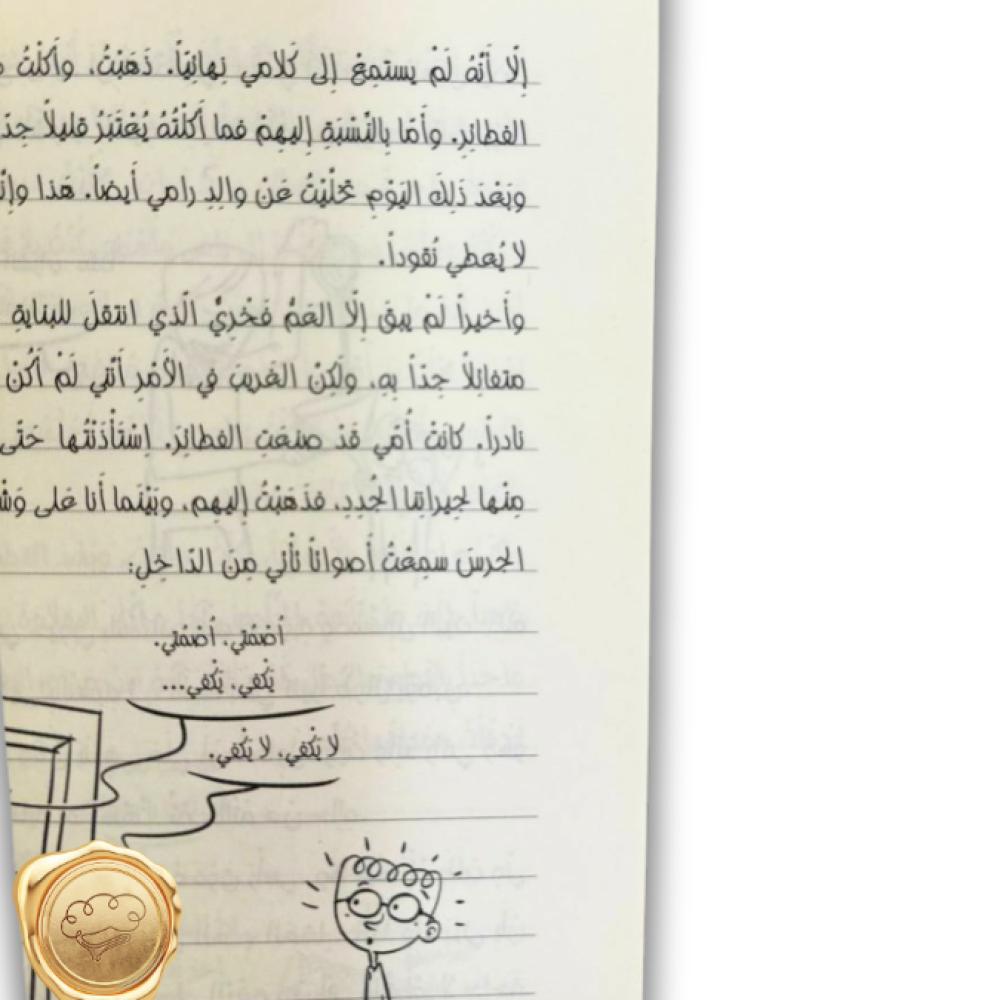 إلّا أنّهُ لَمْ يستمِعْ إلى كَلامي نِهائِيّاً. ذَهَبْتُ، وأَكَلْتُ
الفطائِرِ. وأَمّا بِالنّسْبَةِ إليهِمْ فما أَكَلْتُهُ يُعْتَبَرُ قليلاً جِدّ
وبَعْدَ ذَلِكَ اليَوْمِ تخَلّيْتُ عَنْ والِدِ رامي أَيضاً. هَذا وإنّ
لا يُعطي نُقوداً.
وأَخيراً لَمْ يبقَ إلّا العَمُّ فَخْرِيُّ الّذي انتقلَ للبنايةِ
متفائِلاً جِدّاً بِهِ، ولَكِنْ الغَريبَ في الأَمْرِ أَنّني لَمْ أَكُنْ
نادراً. كانَتْ أُمّي قَدْ صنعَتِ الفطائِرَ. اِسْتَأْذَنْتُها حَتّى
مِنْها لِجيرانِنا الجُدِدِ. فذَهَبْتُ إليهِم، وبَيْنَما أَنا عَلى وَشْ
الجرسَ سمِعْتُ أَصواتاً تأتي مِنَ الدّاخِلِ:
أُصْمُتي. أُصْمُتي.
يَكْفي. يَكْفي...
لا يَكْفي، لا يَكْفي.